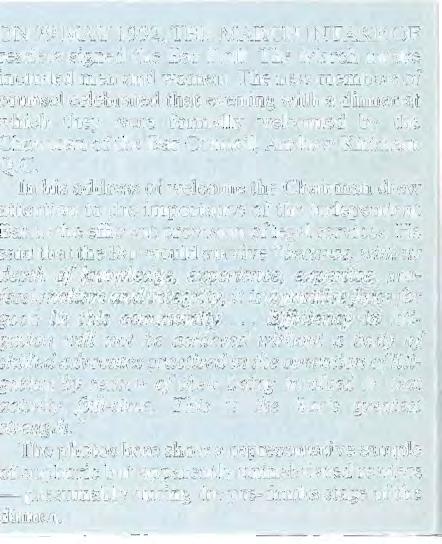 ON 19 MAY 1994, THE MARCH INTAKE OF
readers signed the Bar Roll. The March
included men and women. The new members of
counsel celebrated that evening with a dinner at
which they were formally welcomed by the
Chairman of the Bar Council, Andrew Kirkham
Q.C.
In his address of welcome the Chairman drew
attention to the importance of the independent
Bar to the efficient provision of legal services. He
said that the Bar would survive "because, with its
depth of knowledge, experience, expertise,
and integrity, it is a positive force for
good in this community. . . . Efficiency in liti-
gation will not be achieved without a body of
skilled advocates practised in the operation of liti-
gation by reason of their being involved in that
activity full-time. This is the Bar's greatest
strength."
The photos here show a representative sample
of euphoric but apparently uninebriated readers
— presumably during the pre-drinks stage of the
dinner.